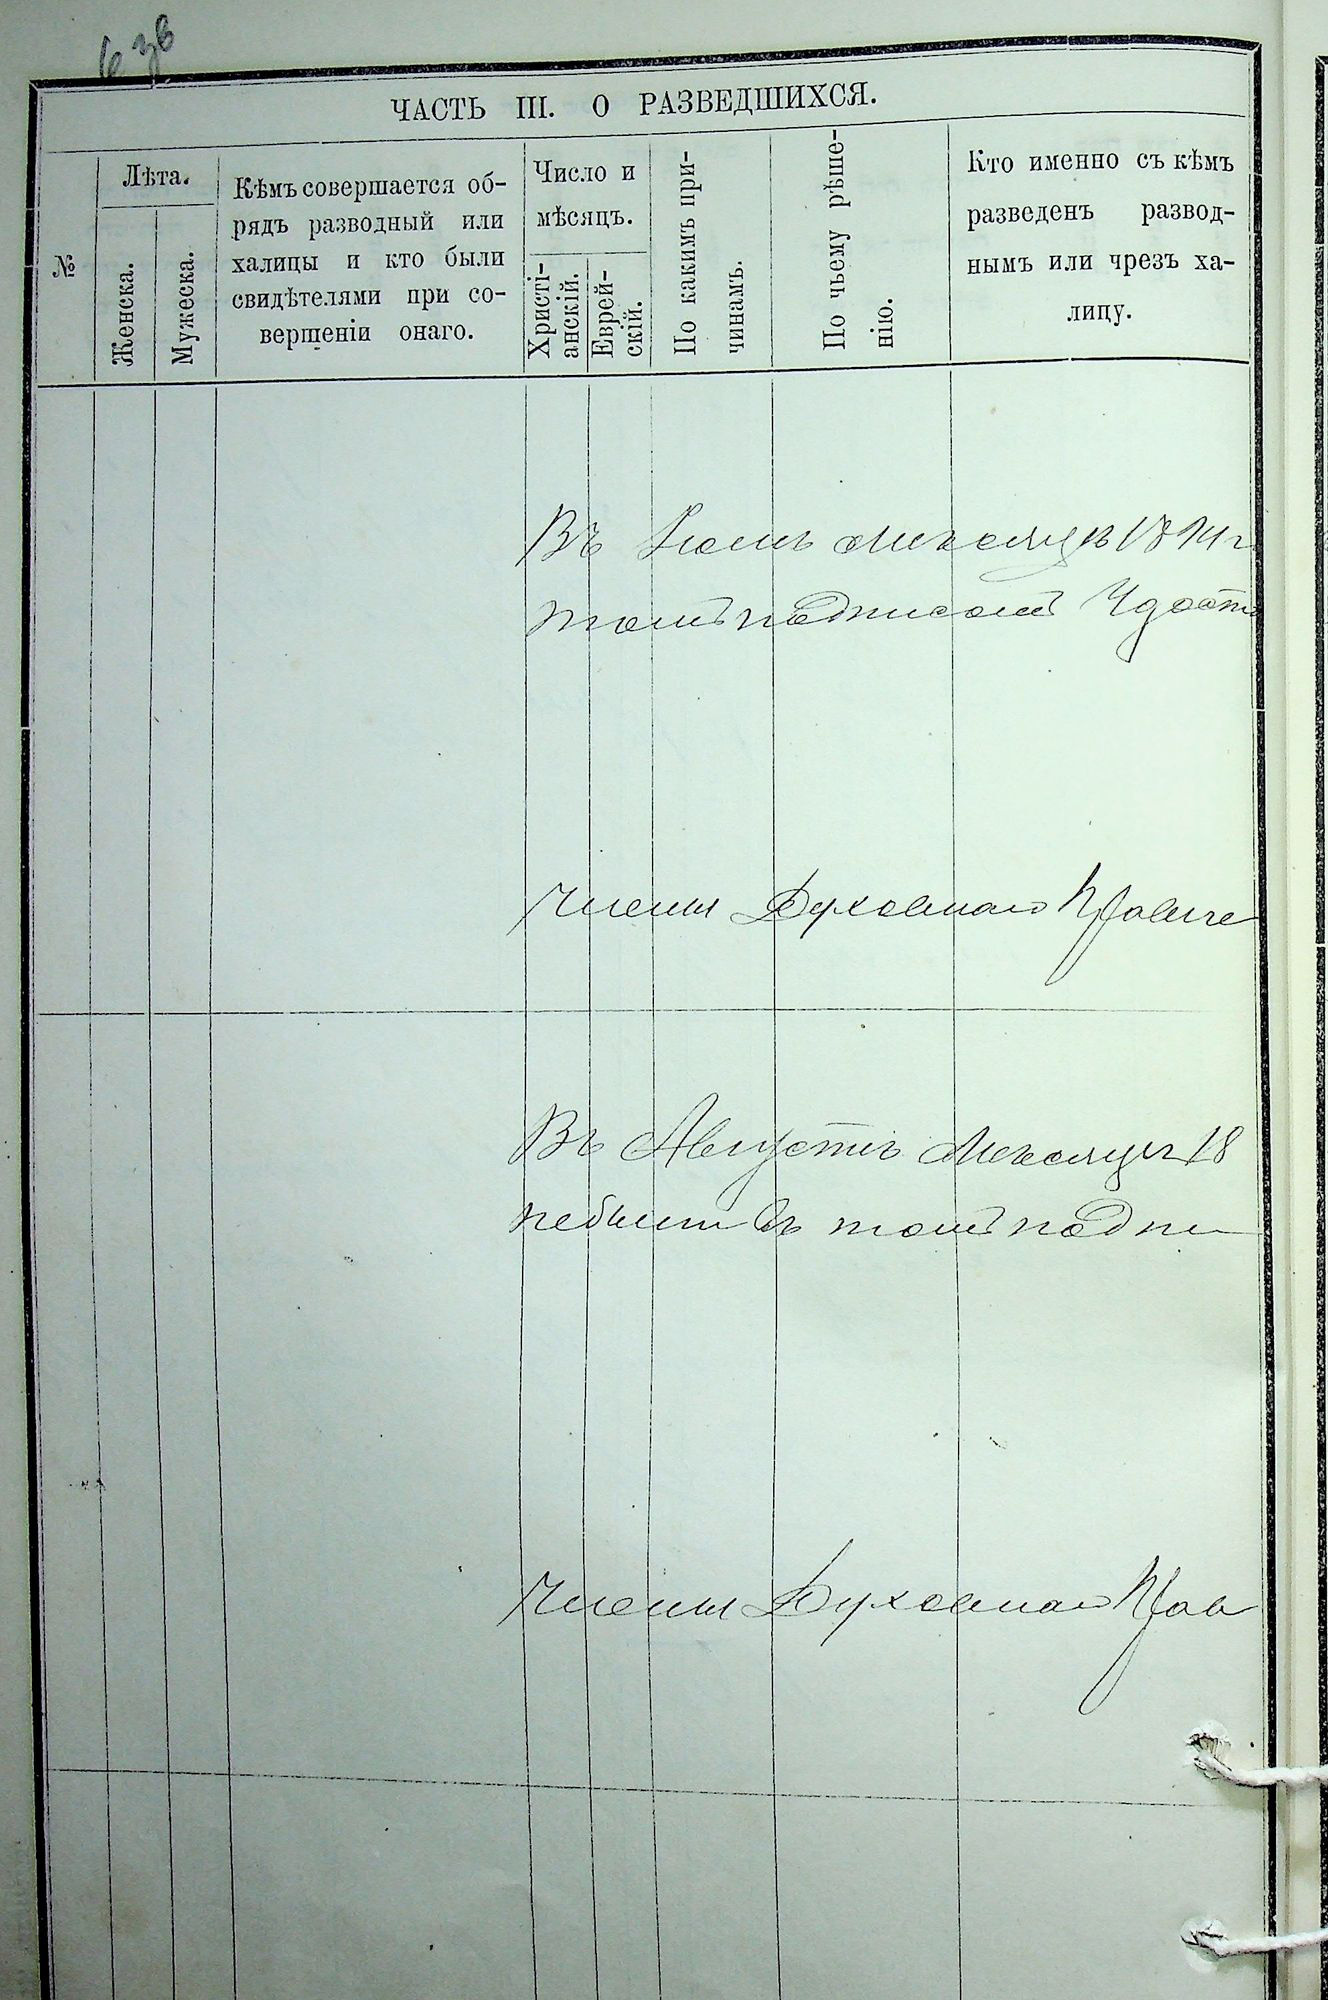 6 зв
ЧАСТЬ III. О РАЗВЕДШИХСЯ.
№
Лѣта.
Женска.
Мужеска.
Кѣмъ совершается об-
рядъ разводный или
халицы и кто были
свидѣтелями при со-
вершеніи онаго.
Число и
мѣсяцъ.
Христі-
анскій.
Еврей-
скій.
По какимъ при-
чинамъ.
По чьему рѣше-
нію.
Кто именно съ кѣмъ
разведенъ развод-
нымъ или чрезъ ха-
лицу.
Въ мѣсяцѣ
томъ подписомъ Удост
Члены Духовнаго Правле
Въ Августѣ мѣсяцѣ 18
небыли въ томъ подпи
Члены Духовнаго Прав